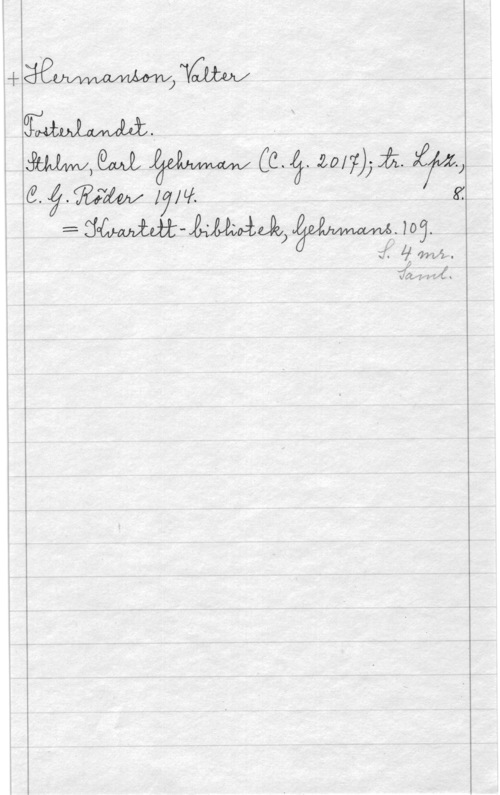 + Hermanson, Valter
Fosterlandet.
Sthlm, Carl Gehrman (C. G. 2017); tr. Lpz.,
C. G. Röder 1914. 8.
= Kvartett-bibliotek, Gehrmans. 109.
S. 4 mr.
Saml.